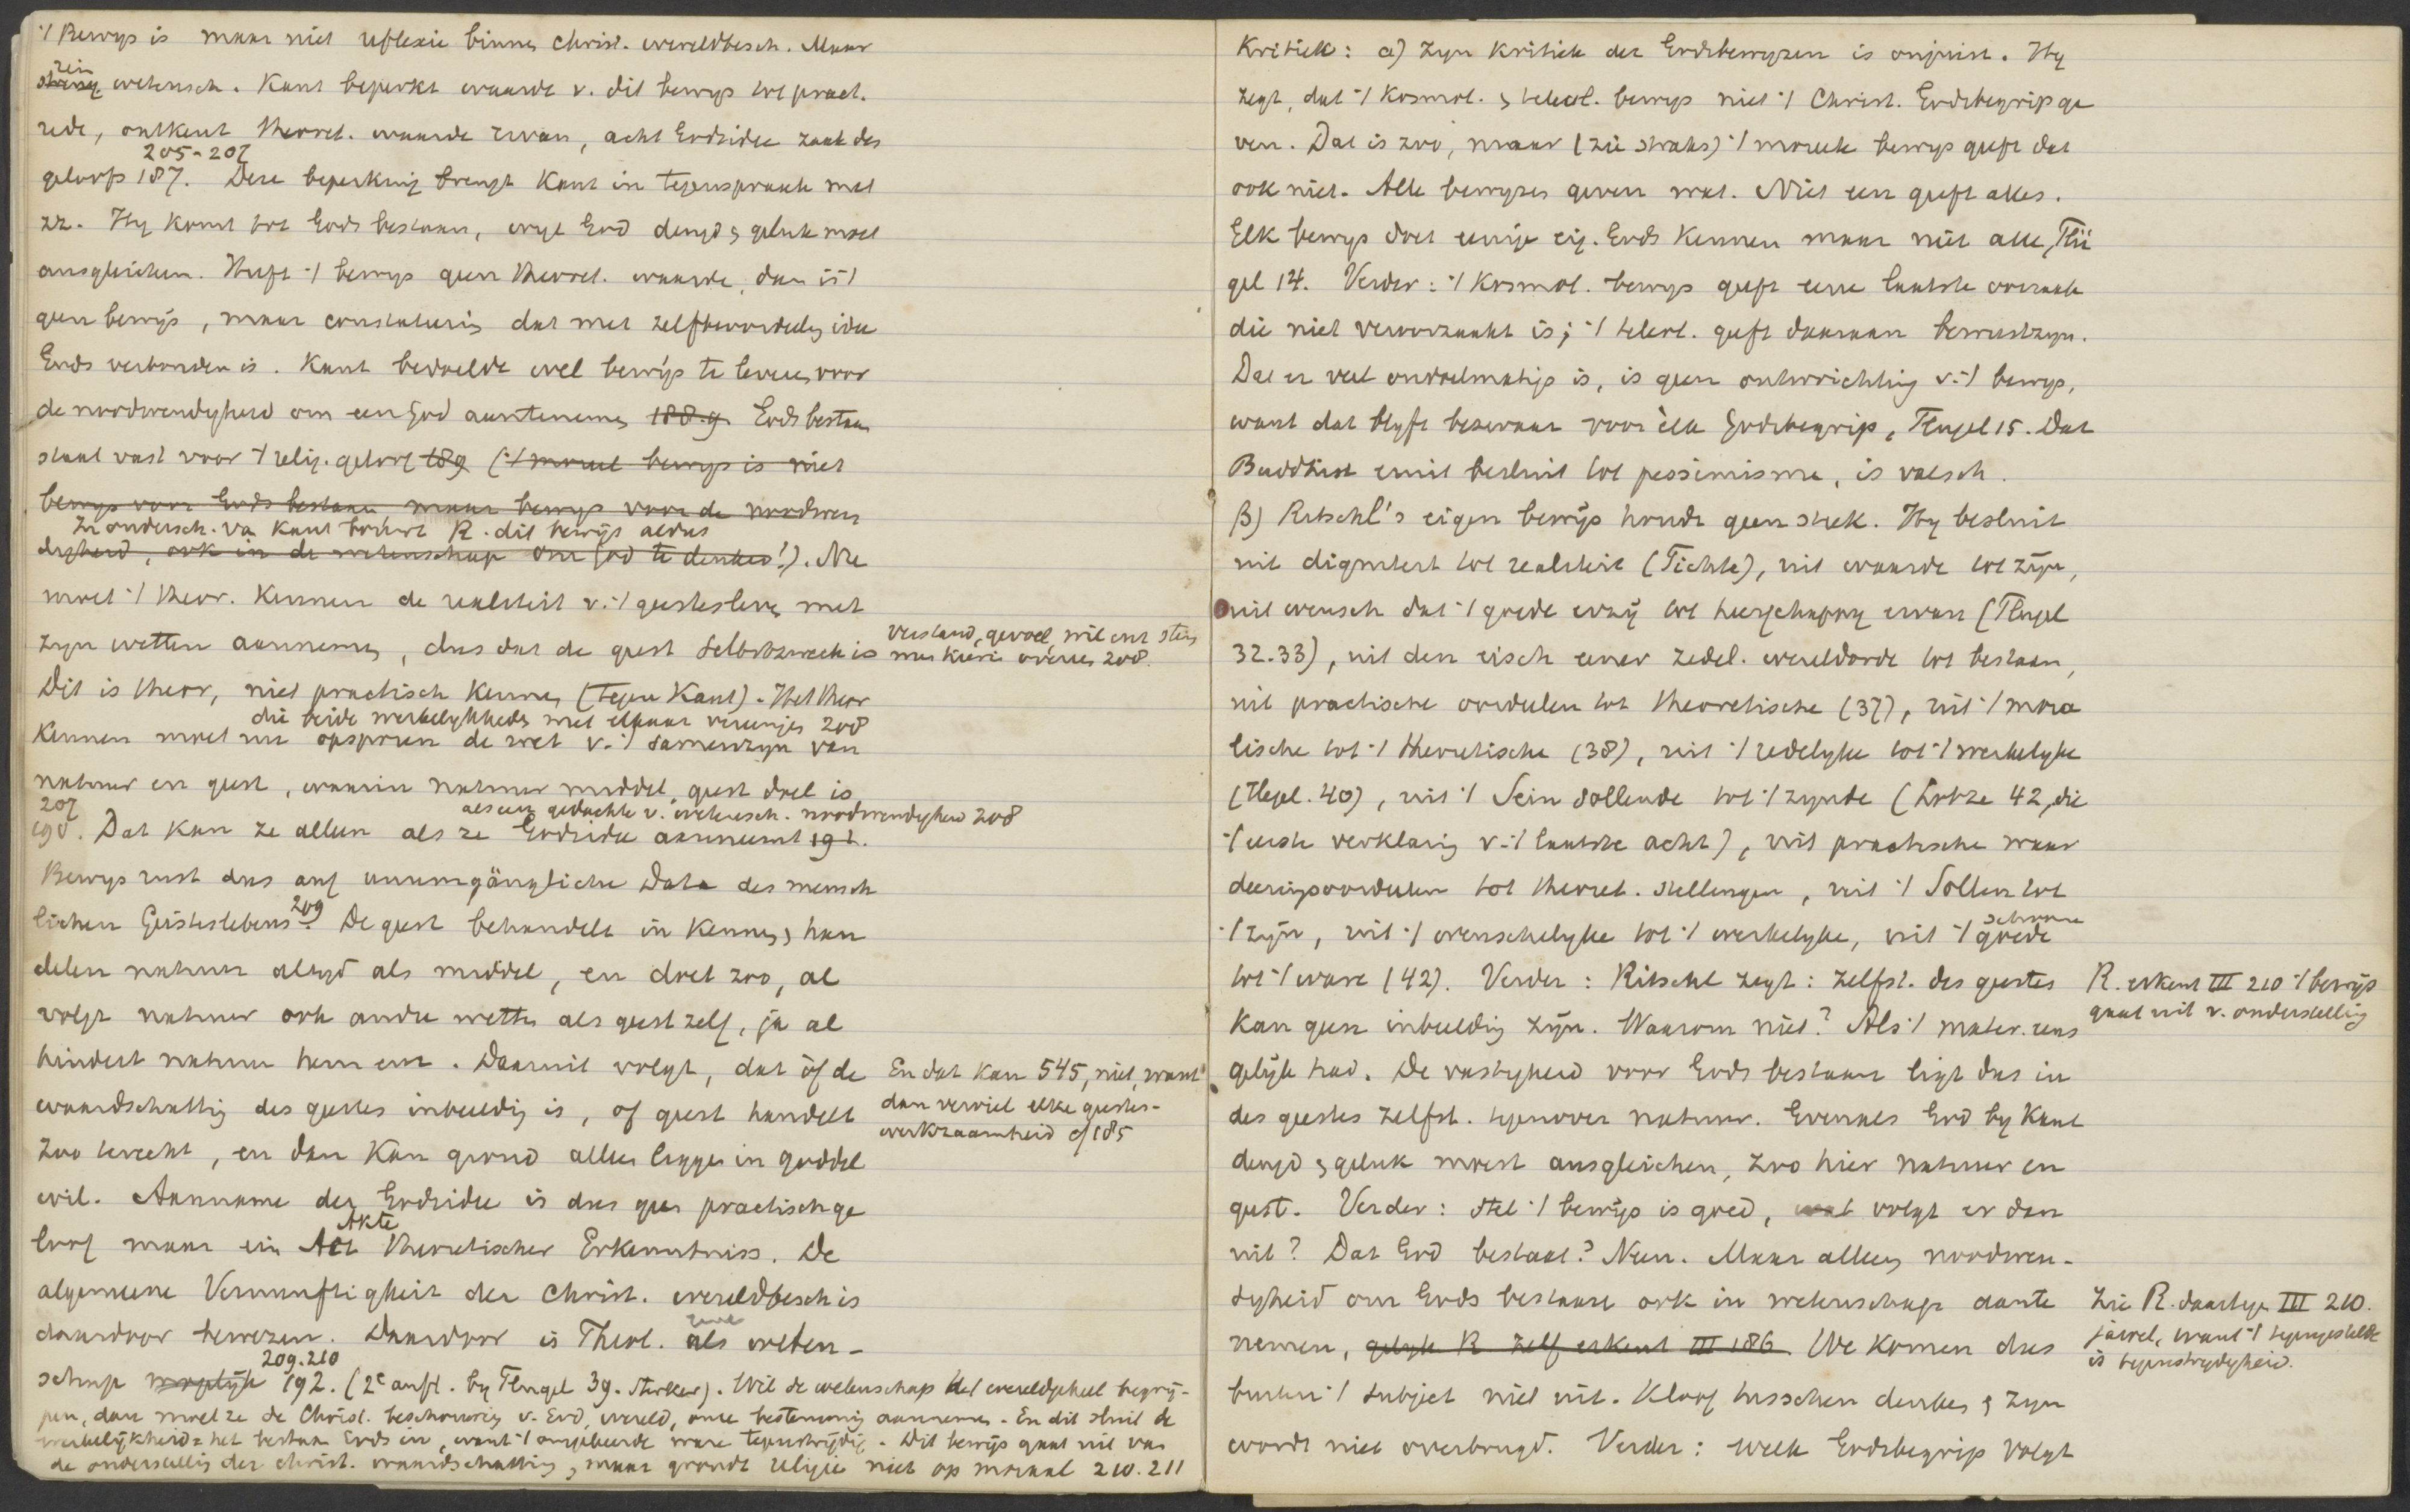 't Bewijs is maar niet reflexie binnen Christ. wereldbesch. Maar
rein
streng wetensch. Kant beperkt waarde v. dit bewijs tot pract.
rede, ontkent theoret. waarde ervan, acht Godsidee zaak des
205-207
geloofs 187. Deze beperking brengt Kant in tegenspraak met
zz. Hy komt tot Gods bestaan, wyl God deugd & geluk moet
ausgleichen. Heeft 't bewys geen theoret. waarde, dan is 't
geen bewijs, maar constateering dat met zelfbeoordeeling idee
Gods verbonden is. Kant bedoelde wel bewijs te leveren voor
de noodwendigheid om een God aantenemen 188.9. Gods bestaan
staat vast voor 't relig. geloof 189 ('t moreel bewijs is niet
bewys voor Gods bestaan maar bewys voor de noodwen
In ondersch. va Kant formt R. dit bewijs aldus
digheid, ook in de wetenschap om God te denken!). Nu
moet 't theor. kennen de realiteit v. 't geestesleven met
zyn wetten aannemen, dus dat de geest Selbstzweck is
verstand, gevoel, wil ent
208.
Dit is theor, niet practisch kennen (tegen Kant). Het theor
die beide werkelykheden met elkaar vereenigen 208
kennen moet nu opsporen de wet v. 't samenzyn van
natuur en geest, waarin natuur middel, geest doel is
207
190. Dat kan ze alleen als ze Godsidee aanneemt 191.
als een gedachte v. wetensch. noodwendigheid 208
Bewys rust dus auf unumgängliche Data des mensch
lichen Geisteslebens 209 De geest behandelt in kennen & han
delen natuur altyd als middel, en doet zoo, al
volgt natuur ook andre wetten als geest zelf, ja al
hindert natuur hem erin. Daaruit volgt, dat òf de
waardschatting des geestes inbeelding is, of geest handelt
zoo terecht, en dan kan grond alleen liggen in goddel
wil. Aanname der Godsidee is dus geen practisch ge
En dat kan 545, niet, want
dan verviel elke geestes-
werkzaamheid cf 185
Akte
loof maar ein Act theoretischer Erkenntniss. De
algemeene Vernunftigheit der Christ. wereldbesch is
daardoor bewezen. Daardoor is Theol. als weten-
209.210
schap mogelijk 192. (2e aufl. by Flugel 39. sterker). Wil de wetenschap het wereldgeheel begrij-
pen, dan moet ze de Christ. beschouwing v. God, wereld, onze bestemming aannemen. En dit sluit de
werkelijkheid = het bestaan Gods in, want 't omgekeerde ware tegenstrijdig. Dit bewijs gaat uit van
de onderstelling der christ. waardschatting, maar grondt religie niet op moraal 210.211
Kritiek: α) Zyn kritiek der Godsbewyzen is onjuist. Hy
zegt, dat 't kosmol. & teleol. bewys niet 't Christ. Godsbegrip ge
ven. Dat is zoo, maar (zie straks) 't moreele bewys geeft dat
ook niet. Alle bewyzen geven wat. Niet een geeft alles.
Elk bewys doet eenige eig. Gods kennen maar niet alle, Flü
gel 14. Verder: 't kosmol. bewys geeft eene laatste oorzaak
die niet veroorzaakt is; 't teleol. geeft daaraan bewustzyn.
Dat er veel ondoelmatigs is, is geen ontwrichting v. 't bewys,
want dat blyft bezwaar voor èlk Godsbegrip, Flugel 15. Dat
Buddhist eruit besluit tot pessimisme, is valsch.
β) Ritschl's eigen bewijs houdt geen steek. Hy besluit
uit digniteit tot realiteit (Fichte), uit waarde tot zijn,
uit wensch dat 't goede er zij tot heerschappy ervan (Flugel
32.33), uit den eisch eener zedel. wereldorde tot bestaan,
uit practische oordeelen tot theoretische (37), uit 't mora
lische tot 't theoretische (38), uit 't redelyke tot 't werkelyke
(Hegel. 40), uit 't Sein sollende tot 't zynde (Lotze 42, die
't eerste verklaring v. 't laatste acht), uit practische waar
deeringsoordeelen tot theoret. stellingen, uit 't Sollen tot
't zijn, uit 't wenschelyke tot 't werkelyke, uit 't goede
schoone
tot 't ware (42). Verder: Ritschl zegt: zelfst. des geestes
kan geen inbeelding zijn. Waarom niet? Als 't mater. eens
R. erkent III 210 't bewijs
gaat uit v. onderstelling
gelijk had. De vastigheid voor Gods bestaan ligt dus in
des geestes zelfst. tegenover natuur. Evenals God by Kant
deugd & geluk moest ausgleichen, zoo hier natuur en
geest. Verder: stel 't bewijs is goed, wat volgt er dan
uit? Dat God bestaat? Neen. Maar alleen noodwen-
digheid om Gods bestaan ook in wetenschap aante
nemen, gelyk R zelf erkent III 186. We komen dus
Zie R. daartegen III 210.
jawel, want 't tegengestelde
is tegenstrydigheid.
buiten 't subject niet uit. Kloof tusschen denken & zyn
wordt niet overbrugd. Verder: welk Godsbegrip volgt